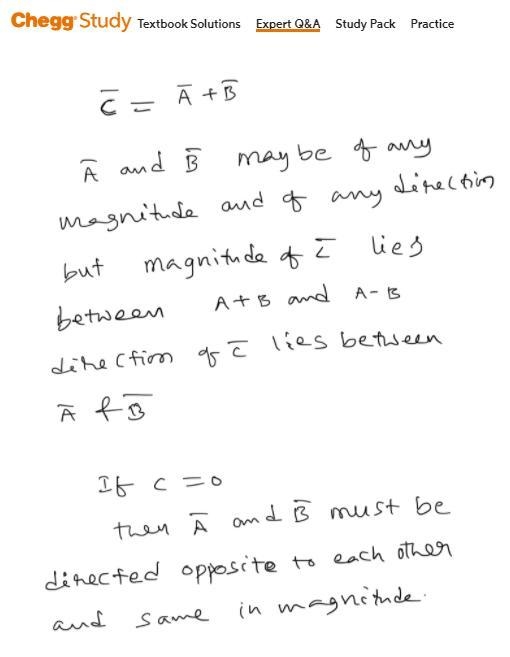 Chegg Study Textbook Solutions Expert Q&A Study Pack Practice
C̅ = A̅ + B̅
A̅ and B̅ may be of any
magnitude and of any direction
but magnitude of C̅ lies
between A+B and A-B
direction of C̅ lies between
A̅ & B̅
If C = 0
then A̅ and B̅ must be
directed opposite to each other
and same in magnitude.